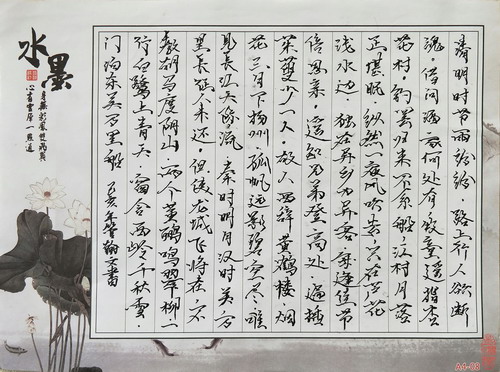 清明时节雨纷纷，路上行人欲断
魂，借问酒家何处有，牧童遥指杏
花村，钓罢归来不系船，江村月落
正堪眠，纵然一夜风吹去，只在芦花
浅水边，独在异乡为异客，每逢佳节
倍思亲，遥知兄弟登高处，遍插
茱萸少一人，故人西辞黄鹤楼，烟
花三月下扬州，孤帆远影碧空尽，唯
见长江天际流，秦时明月汉时关，万
里长征人未还，但使龙城飞将在，不
教胡马度阴山，两个黄鹂鸣翠柳，一
行白鹭上青天，窗含西岭千秋雪，
门泊东吴万里船 己亥年 翰文书
水墨
A4-68